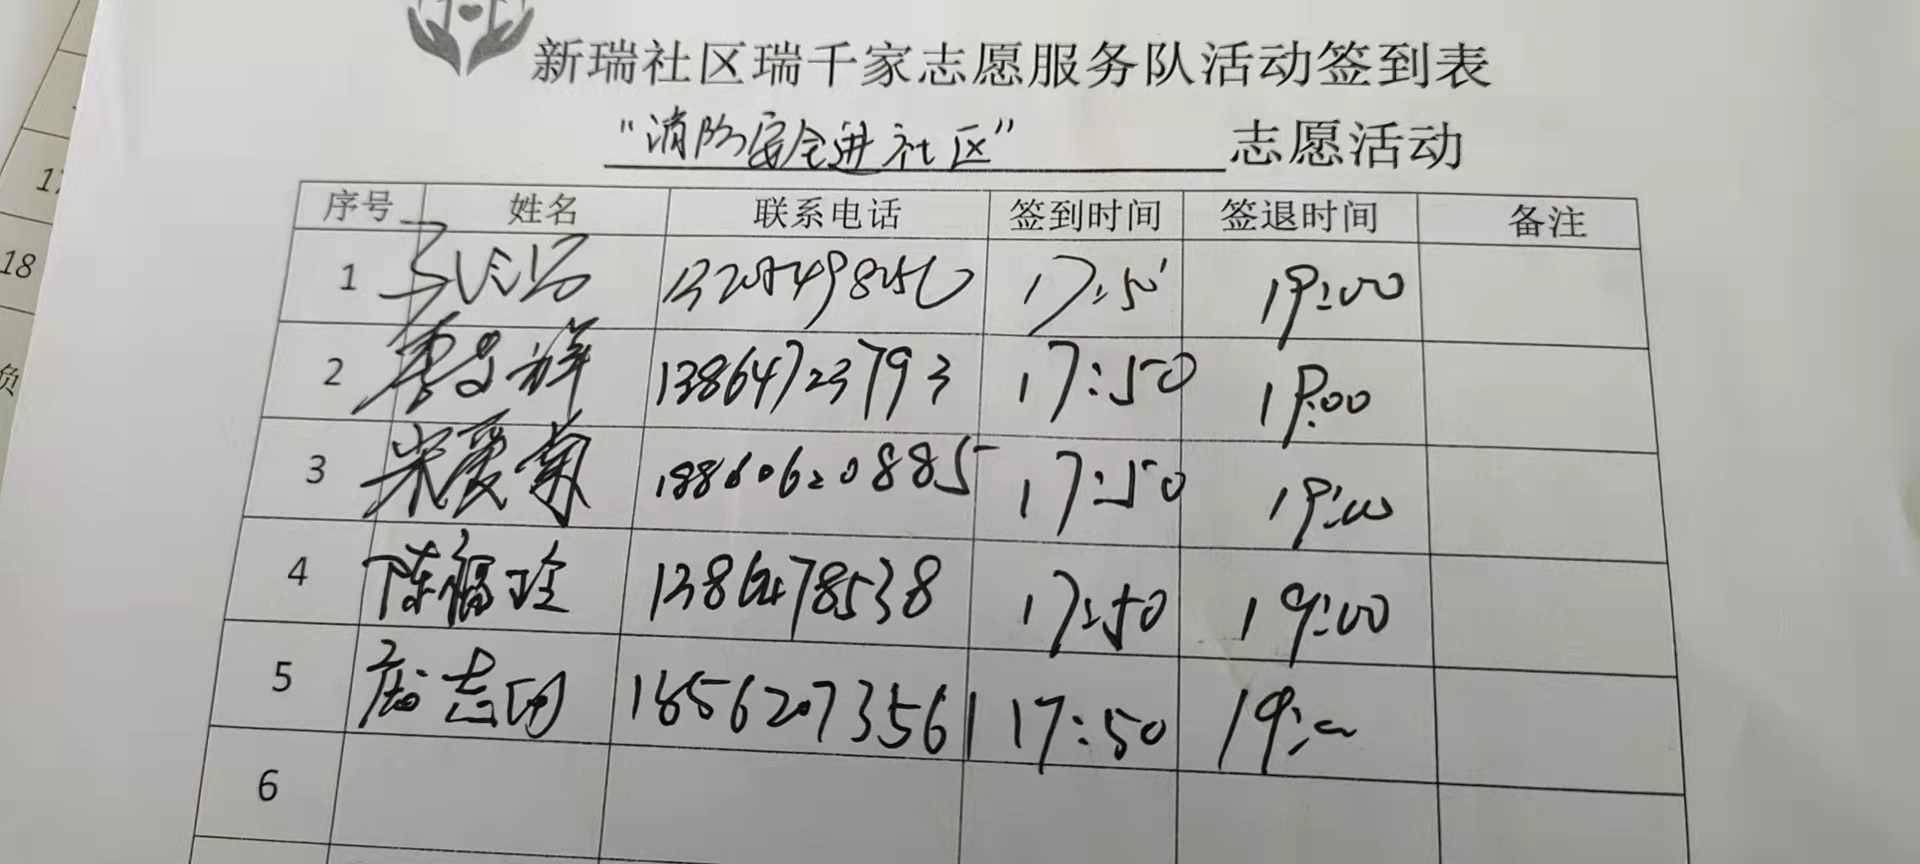 新瑞社区瑞千家志愿服务队活动签到表
"消防安全进社区" 志愿活动
序号 姓名 联系电话 签到时间 签退时间 备注
1 17:50 19:00
2 13864723793 17:50 19:00
17
3 宋爱菊 18860620885 17:50 19:00
18
4 陈福玲 1386478538 17:50 19:00
5 18562073561 17:50 19:00
6